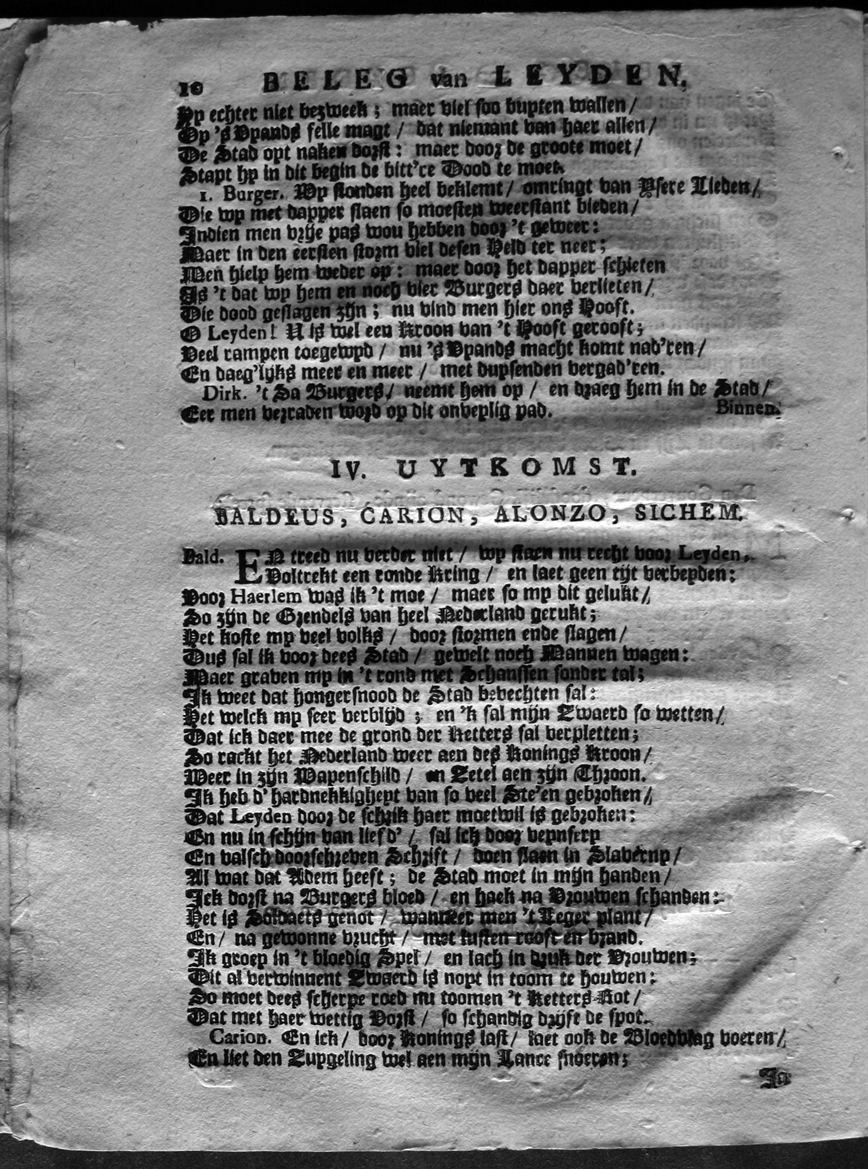 10 BELEG van LEYDEN.
Hy echter niet bezweek; maer viel soo buyten wallen/
Op 's Vyands felle magt / dat niemant van haer allen/
De Stad opt naken dorst: maer door de groote moet/
Stapt hy in dit begin de bitt're Dood te moet.
1. Burger. Wy stonden heel beklemt/ omringt van Ysere Lieden/
Die wy met dapper slaen so moesten weerstant bieden/
Indien men vrije pas wou hebben door 't geweer:
Maer in den eersten storm viel desen Held ter neer;
Men hielp hem weder op: maer door het dapper schieten
Is 't dat wy hem en noch vier Burgers daer verlieten/
Die dood geslagen zijn; nu vind men hier ons Hooft.
O Leyden! U is wel een Kroon van 't Hooft gerooft;
Veel rampen toegewyd / nu 's Vyands macht komt nad'ren/
En daeg'lijks meer en meer / met duysenden vergad'ren.
Dirk. 't Sa Burgers/ neemt hem op / en draeg hem in de Stad/
Eer men verraden word op dit onveylig pad. Binnen.
IV. UYTKOMST.
BALDEUS, CARION, ALONZO, SICHEM.
Bald. EN treed nu verder niet / wy staen nu recht voor Leyden,
Voltrekt een ronde Kring / en laet geen tijt verbeyden:
Voor Haerlem was ik 't moe / maer so my dit gelukt/
So zijn de Grendels van heel Nederland gerukt;
Het koste my veel volks / door stormen ende slagen/
Dus sal ik voor dees Stad / gewelt noch Mannen wagen:
Maer graven my in 't rond met Schanssen sonder tal;
Ik weet dat hongersnood de Stad bevechten sal:
Het welck my seer verblijd; en 'k sal mijn Zwaerd so wetten/
Dat ick daer mee de grond der Ketters sal verpletten;
So rackt het Nederland weer aen des Konings Kroon/
Weer in zijn Wapenschild / en Zetel aen zijn Throon.
Ik heb d' hardnekkigheyt van so veel Ste'en gebroken/
Dat Leyden door de schrik haer moetwil is gebroken:
En nu in schijn van lief d' / sal ick door veynsery
En valsch doorschreven Schrift / doen slaen in Slaverny/
Al wat dat Adem heeft; de Stad moet in mijn handen/
Ick dorst na Burgers bloed / en haek na Vrouwen schanden:
Het is Soldaets genot / wanneer men 't Leger plant/
En/ na gewonne vrucht / met lusten rooft en brand.
Ik groey in 't bloedig Spel / en lach in druk der Vrouwen;
Dit al verwinnent Zwaerd is noyt in toom te houwen;
So moet dees scherpe roed nu toomen 't Ketters Rot/
Dat met haer wettig Vorst / so schandig drijft de spot.
Carion. En ick/ door Konings last/ laet ook de Bloedvlag voeren/
En liet den Zuygeling wel aen mijn Lance snoeren;